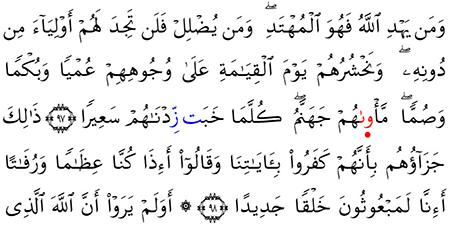 وَمَن يَهْدِ ٱللَّهُ فَهُوَ ٱلْمُهْتَدِۖ وَمَن يُضْلِلْ فَلَن تَجِدَ لَهُمْ أَوْلِيَآءَ مِن
دُونِهِۦۖ وَنَحْشُرُهُمْ يَوْمَ ٱلْقِيَٰمَةِ عَلَىٰ وُجُوهِهِمْ عُمْيًا وَبُكْمًا
وَصُمًّاۖ مَّأْوَىٰهُمْ جَهَنَّمُۖ كُلَّمَا خَبَت زِّدْنَٰهُمْ سَعِيرًا ﴿٩٧﴾ ذَٰلِكَ
جَزَآؤُهُم بِأَنَّهُمْ كَفَرُوا۟ بِـَٔايَٰتِنَا وَقَالُوٓا۟ أَءِذَا كُنَّا عِظَٰمًا وَرُفَٰتًا
أَءِنَّا لَمَبْعُوثُونَ خَلْقًا جَدِيدًا ﴿٩٨﴾ ۞ أَوَلَمْ يَرَوْا۟ أَنَّ ٱللَّهَ ٱلَّذِى